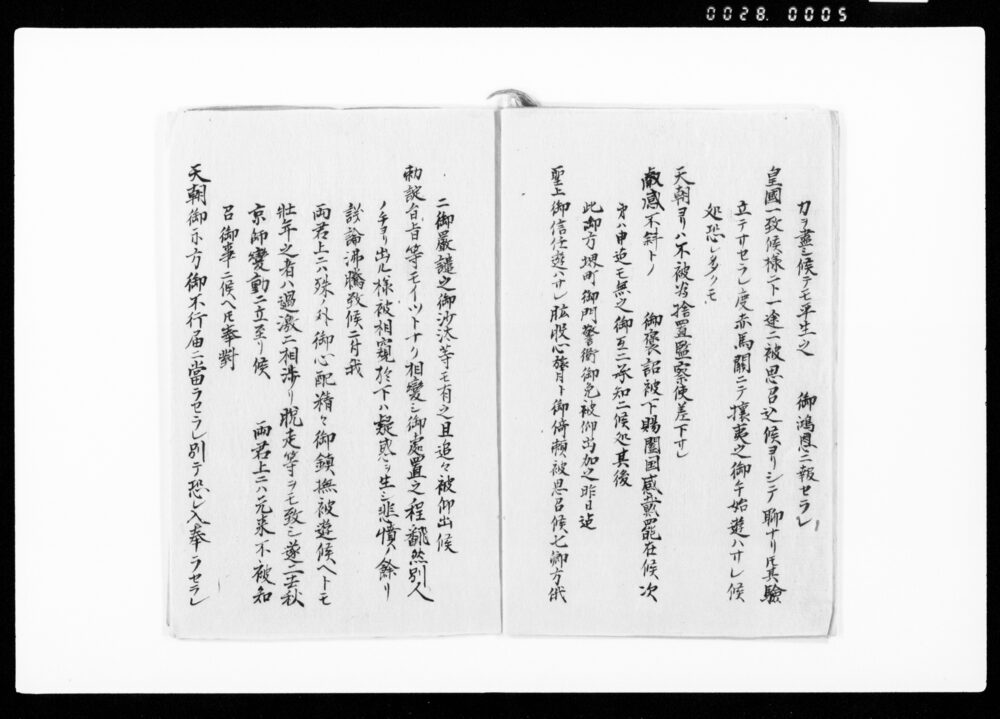 0028. 0005
力ヲ盡シ候テモ平生之　御鴻恩ニ報セラレ
皇國一致候様ニト一途ニ被思召込候ヨリシテ聊ナリ圧其驗
立テサセラレ度赤馬關ニテ攘夷之御手始遊ハサレ候
処恐レ多クモ
天朝ヨリハ不被為捨置監察使差下サレ
叡感不斜トノ　御褒詔被下賜闔国感戴罷在候次
才ハ申迄モ無之御互ニ承知ニ候処其後
此御方堺町御門警衛御免被仰出加之昨日迄
聖上御信任遊ハサレ股肱心膂トト御倚頼被思召候七卿方俄
ニ御嚴譴之御沙汰等モ有之且追々被仰出候
勅諚台旨等モイツトナク相變シ御處置之程翻然別人
ノ手ヨリ出ル様被相窺於下ハ疑惑ヲ生シ悲憤ノ餘リ
議論沸騰致候ニ付我
両君上ニハ殊ノ外御心配精々御鎮撫被遊候ヘトモ
壮年之者ハ過激ニ相渉リ脱走等ヲモ致シ遂ニ去秋
京師變動ニ立至リ候　両君上ニハ元来不被知
召御事ニ候ヘ圧奉對
天朝御示方御不行届ニ當ラセラレ別テ恐レ入奉ラセラレ